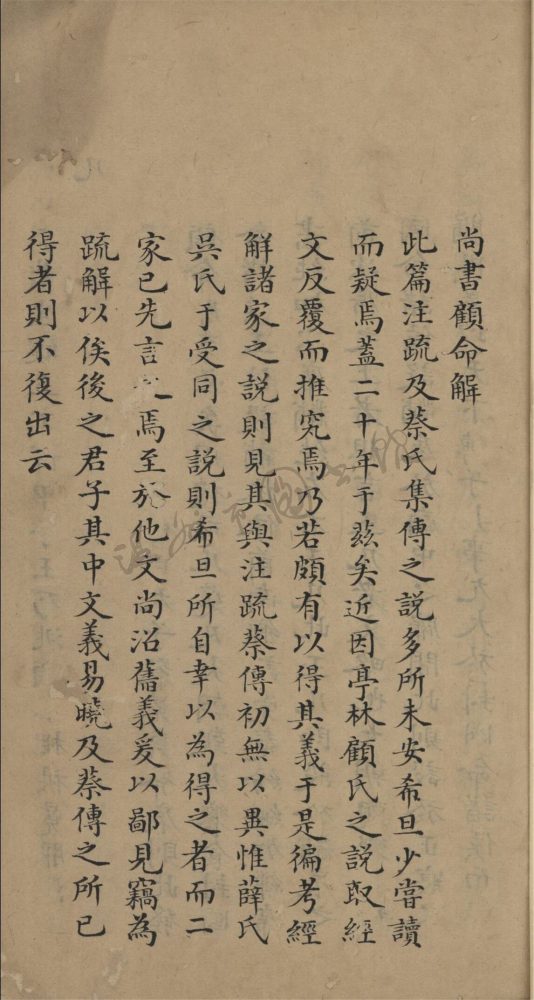 尚書顧命解
此篇注疏及蔡氏集傳之說多所未安希旦少嘗讀
而疑焉蓋二十年于玆矣近因亭林顧氏之說取經
文反覆而推究焉乃若頗有以得其義于是徧考經
解諸家之說則見其與注疏蔡傳初無以異惟薛氏
吳氏于受同之說則希旦所自幸以為得之者而二
家已先言之焉至於他文尚沿舊義爰以鄙見竊為
疏解以俟後之君子其中文義易曉及蔡傳之所已
得者則不復出云